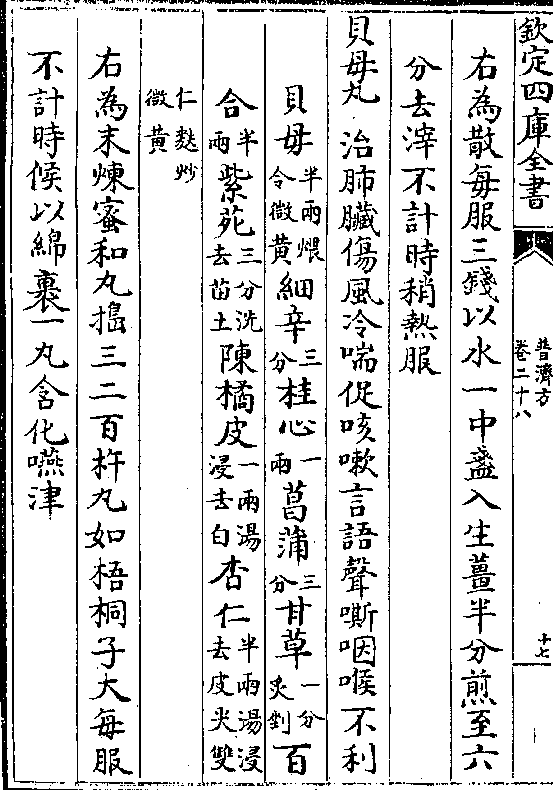 欽定四庫全書
普濟方
卷二十八
十七
右為散每服三錢以水一中盞入生薑半分煎至六
分去滓不計時稍熱服
貝母丸 治肺臟傷風冷喘促咳嗽言語聲嘶咽喉不利
貝母半兩煨令微黃細辛三分桂心一兩菖蒲三分甘草一分炙剉百
合半兩紫苑三分洗去苗土陳橘皮一兩湯浸去白杏仁半兩湯浸去皮尖雙
仁麩炒微黃
右為末煉蜜和丸搗三二百杵丸如梧桐子大每服
不計時候以綿裹一丸含化嚥津